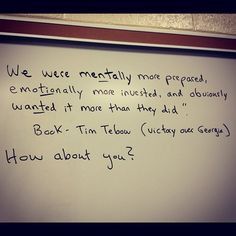 We were mentally more prepared,
emotionally more invested, and obviously
wanted it more than they did".
Book - Tim Tebow (victory over Georgia)
How about you?